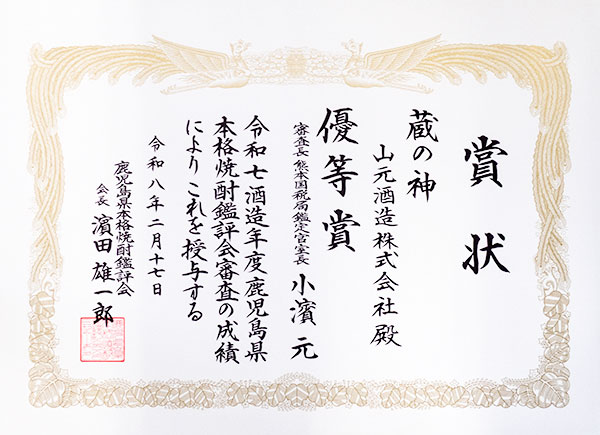 賞状
蔵の神
山元酒造株式会社 殿
優等賞
審査長 熊本国税局鑑定官室長 小濱 元
令和七酒造年度鹿児島県
本格焼酎鑑評会審査の成績
により これを授与する
令和八年二月十七日
鹿児島県本格焼酎鑑評会
会長 濵田 雄一郎